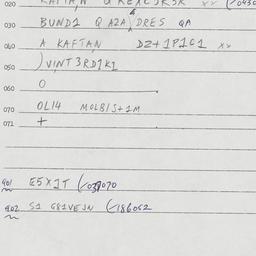 020 KAFTAN
030 BUND1 Q AZA DRES QA
040 A KAFTAN DZ+1P1C1 XX
050 )VINT3RDJKI
060 O
070 OL14 MOLBIS+1M
071 +
901 E5X1T (/039070
902 S1 G81VEJN (/186062